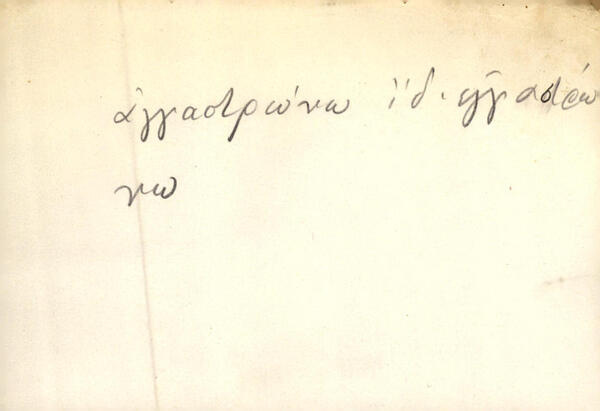 ἀγγαστρώνω ἰδ. ἐγγαστρώ
νω